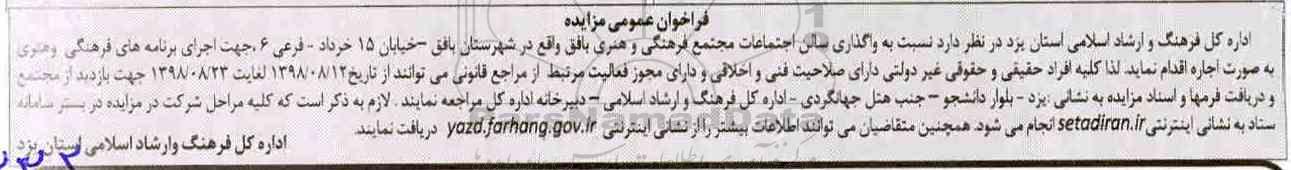 فراخوان عمومی مزایده
اداره کل فرهنگ و ارشاد اسلامی استان یزد در نظر دارد نسبت به واگذاری سالن اجتماعات مجتمع فرهنگی و هنری بافق واقع در شهرستان بافق –خیابان ۱۵ خرداد - فرعی ۶ ،جهت اجرای برنامه های فرهنگی وهنری
به صورت اجاره اقدام نماید. لذا کلیه افراد حقیقی و حقوقی غیر دولتی دارای صلاحیت فنی و اخلاقی و دارای مجوز فعالیت مرتبط از مراجع قانونی می توانند از تاریخ۱۳۹۸/۰۸/۱۲ لغایت ۱۳۹۸/۰۸/۲۳ جهت بازدید از مجتمع
و دریافت فرمها و اسناد مزایده به نشانی :یزد - بلوار دانشجو – جنب هتل جهانگردی - اداره کل فرهنگ و ارشاد اسلامی – دبیرخانه اداره کل مراجعه نمایند . لازم به ذکر است که کلیه مراحل شرکت در مزایده در بستر سامانه
ستاد به نشانی اینترنتی setadiran.ir انجام می شود. همچنین متقاضیان می توانند اطلاعات بیشتر را از نشانی اینترنتی yazd.farhang.gov.ir دریافت نمایند.
اداره کل فرهنگ وارشاد اسلامی استان یزد
ParsNamadData